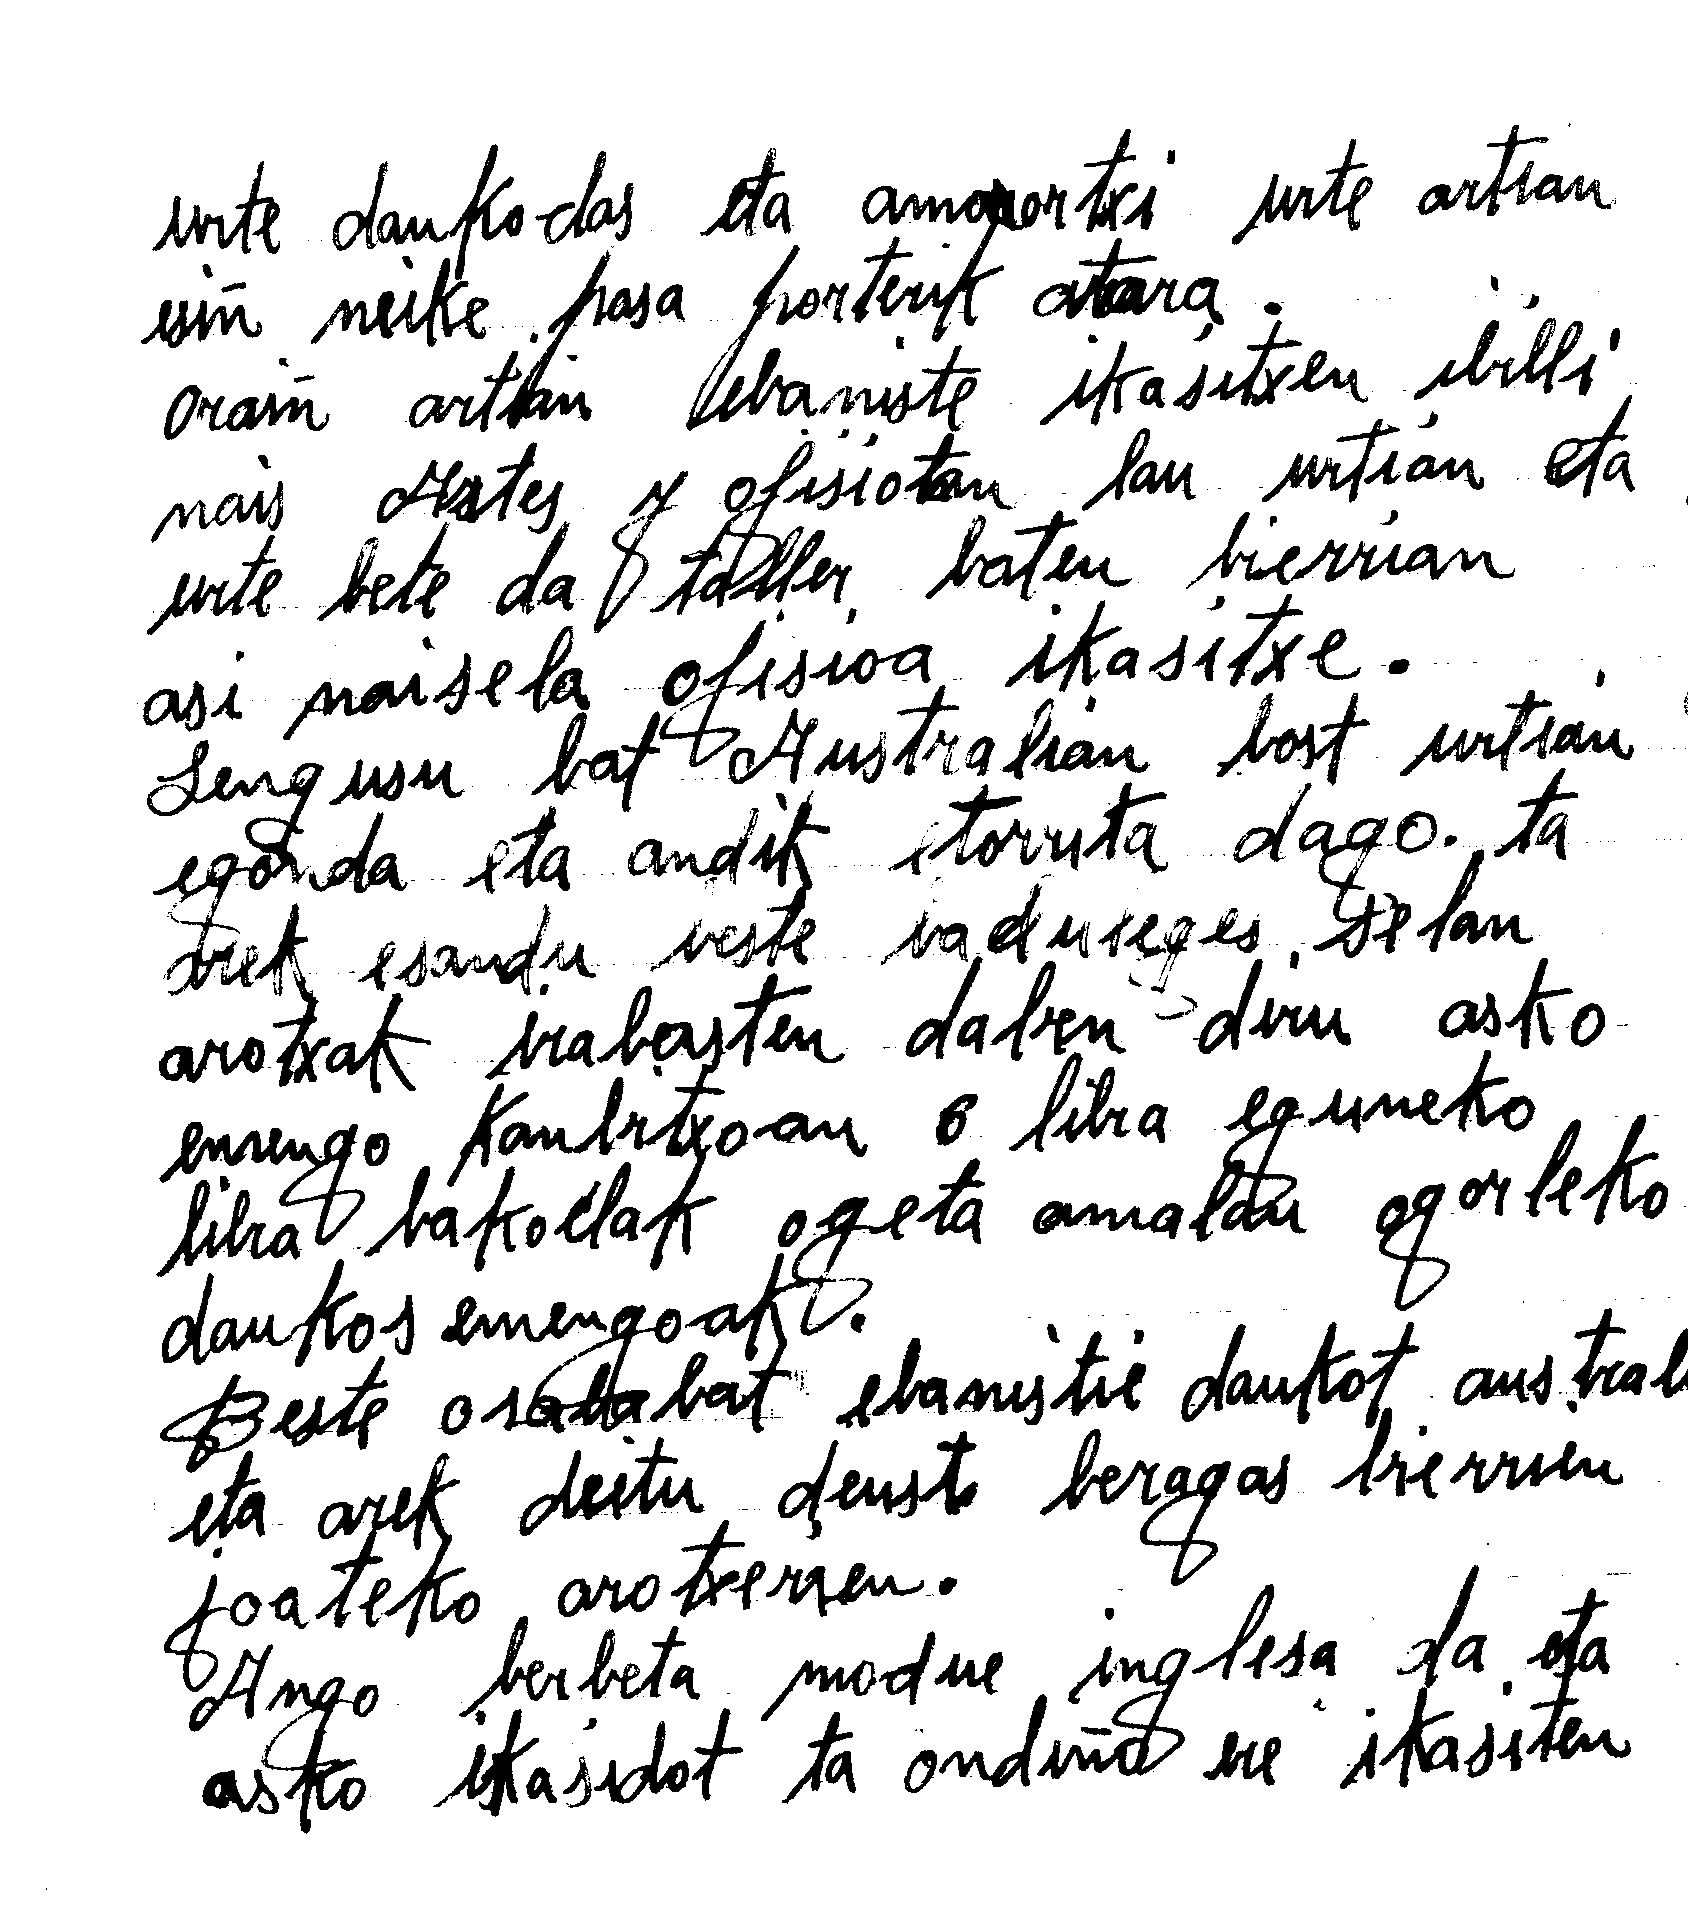 urte daukodas eta amasortxi urte artian
esiñ neike pasaporterik atara.
Oraiñ artian ebaniste ikasitxen ibilli
nais Artes y ofisiotan lau urtian eta
urte bete da taller baten bierrian
asi naisela ofisioa ikasitxe.
Lengusu bat Australian bost urtian
egonda eta andik etorrita dago. ta
arek esandu beste
arotxak irabasten daben diru asko
emengo kanbitxoan 6 libra eguneko
libra bakoitxak ogeta amalau ogorleko
daukos emengoak.
Beste osaba bat ebanistie daukot austral
eta arek deitu deust beragas bierrien
joateko arotxerien.
Ango berbeta modue inglesa da eta
asko ikasidot ta ondiño ere ikasiten